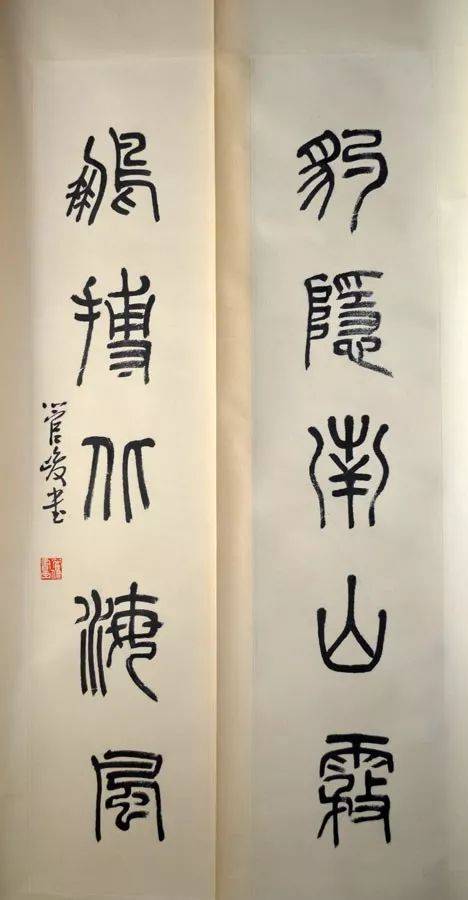 豹隱南山霧
鵬摶北海風
管峻書